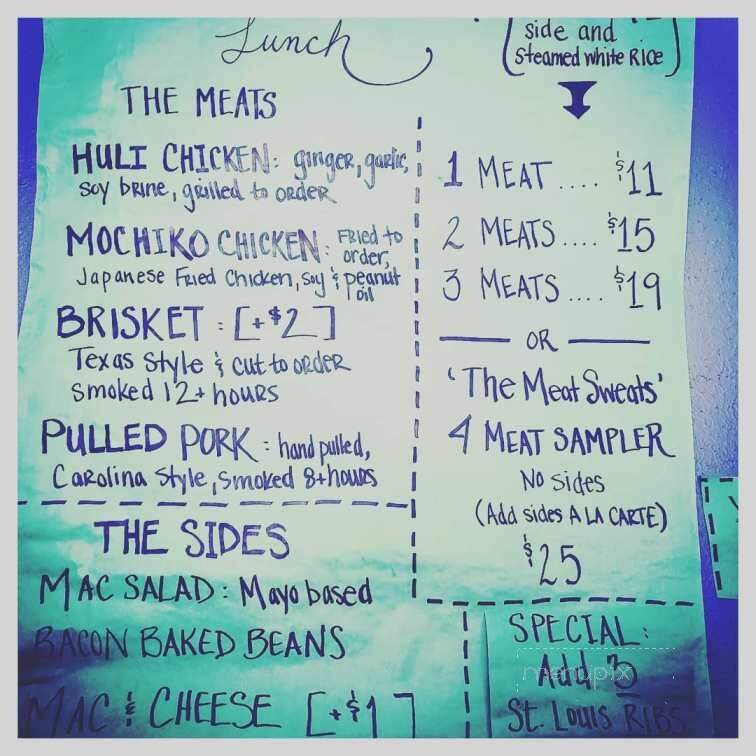 Lunch
THE MEATS
HULI CHICKEN: ginger, garlic,
soy brine, grilled to order
MOCHIKO CHICKEN: Fried to
order,
Japanese Fried Chicken, soy & peanut
oil
BRISKET : [+$2]
Texas Style & cut to order
smoked 12+ hours
PULLED PORK : hand pulled,
Carolina Style, smoked 8+ hours
THE SIDES
MAC SALAD : Mayo based
BACON BAKED BEANS
MAC & CHEESE [+$1]
side and
steamed white Rice
1 MEAT .... $11
2 MEATS .... $15
3 MEATS .... $19
OR
'The Meat Sweats'
4 MEAT SAMPLER
No sides
(Add sides A LA CARTE)
$25
SPECIAL:
Add 3
St. Louis RIBS
menupix